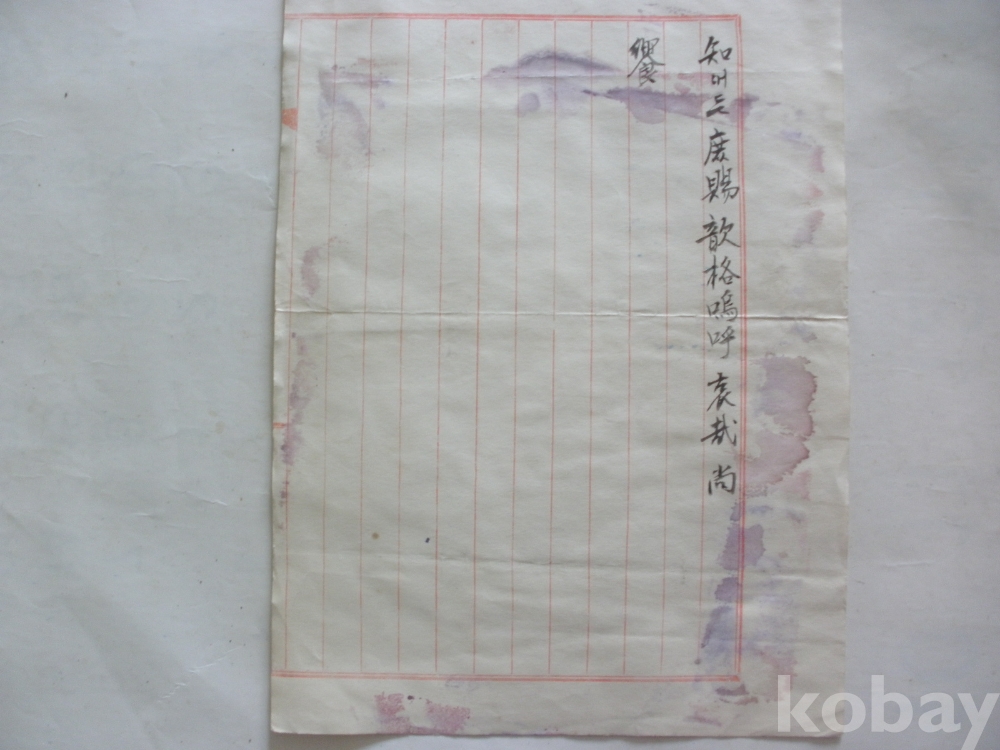 知 庶賜歆格嗚呼哀哉尚
饗
kobay